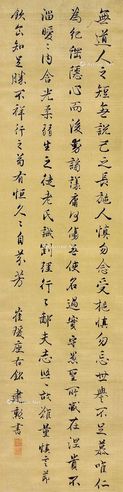 無道人之短無說己之長施人慎勿念受施慎勿忘世譽不足慕唯仁
為紀綱隱心而後動謗議庸何傷無使名過實守愚聖所臧在涅貴不
淄曖々內含光柔弱生之徒老氏誡剛強行々鄙夫志悠々故難量慎言節
飲食知足勝不祥行之苟有恒久々自芬芳 崔瑗座右銘 建勲書